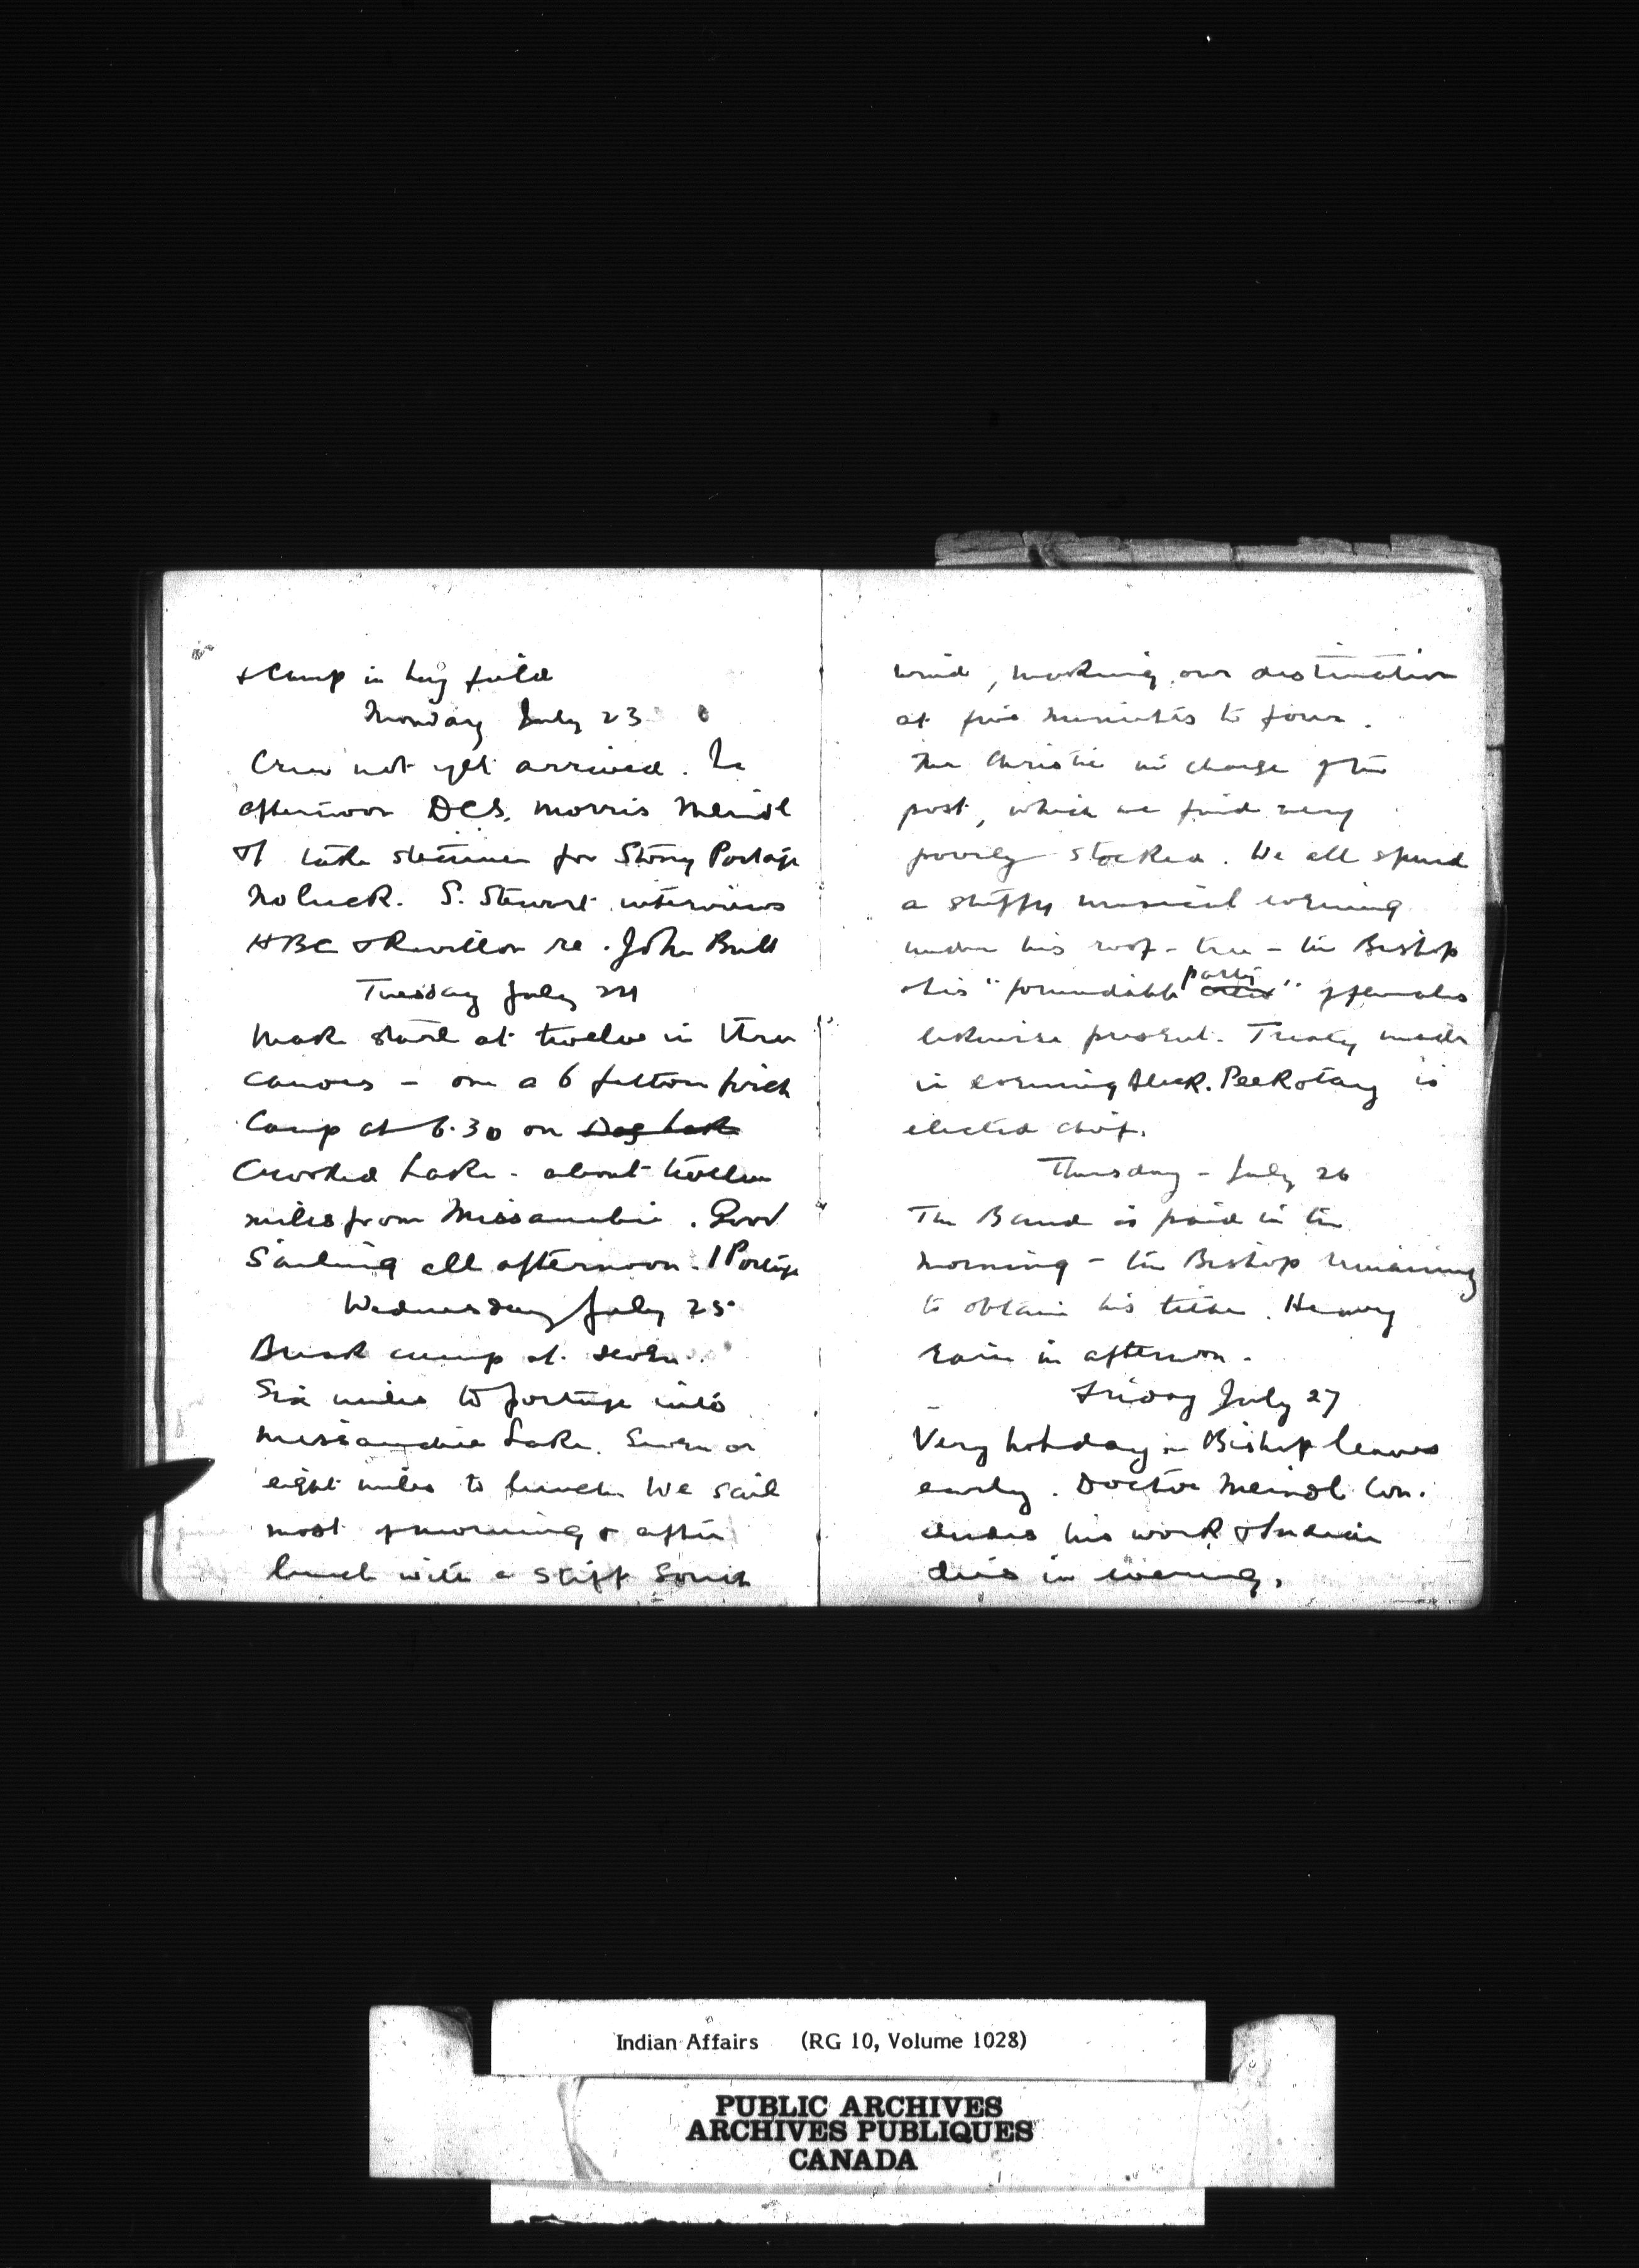 & Camp in hay field
Monday July 23
Crew not yet arrived. In
afternoon DCS, Morris Meindl
& I take steamer for Stony Portage
No luck. S. Stewart interviews
HBC & Revillon re. John Bull
Tuesday July 24
Make start at twelve in three
canoes – one a 6 fathom birch
Camp at 6.30 on Dog Lake
Crooked Lake – about twelve
miles from Missanabie. Good
Sailing all afternoon. 1 Portage
Wednesday July 25
Break camp at seven.
Six miles to portage into
Missanabie Lake. Seven or
eight miles to lunch. We sail
most of morning & after
lunch with a stiff South
wind, making our destination
at five minutes to four.
Mr Christie in charge of the
post, which we find very
poorly stocked. We all spend
a stuffy musical evening
under his roof-tree – the Bishop
& his "formidable party" of females
likewise present. Treaty made
in evening Alex. Peekotay is
elected chief.
Thursday – July 26
The Band is paid in the
morning – the Bishop remaining
to obtain his tithe. Heavy
rain in afternoon.
Friday July 27
Very hot day – Bishop leaves
early. Doctor Meindl con-
cludes his work & Indian
dies in evening.
Indian Affairs (RG 10, Volume 1028)
PUBLIC ARCHIVES
ARCHIVES PUBLIQUES
CANADA